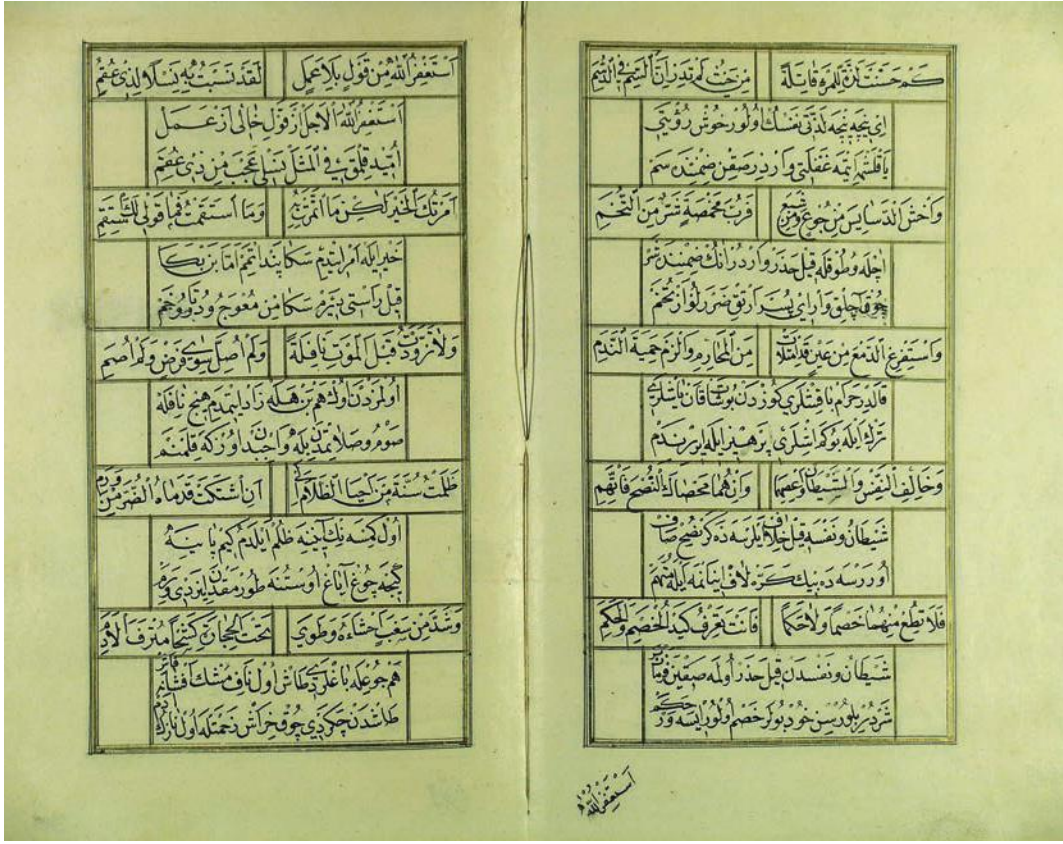 كَمْ حَسَّنَتْ لَذَّةً لِلْمَرْءِ قَاتِلَةً مِنْ حَيْثُ لَمْ يَدْرِ اَنَّ السَّمَّ فِي الدَّسَمِ
اى نيجه نيجه لذتى نفسك اولور خوش رؤيتى
ياقلشمه ايتمه غفلتى واردر صقن ضمننده سم
وَاخْشَ الدَّسَايِسَ مِنْ جُوعٍ وَمِنْ شِبَعٍ فَرُبَّ مَخْمَصَةٍ شَرٌّ مِنَ التُّخَمِ
اجله وطوقله قيل حذر واردر انك ضمننده شر
چوق آچلق وار اى پسر ارتق ضررلو از تخم
وَاسْتَفْرِغِ الدَّمْعَ مِنْ عَيْنٍ قَدِ امْتَلَأَتْ مِنَ الْمَحَارِمِ وَالْزَمْ حِمْيَةَ النَّدَمِ
قالدر حرام باقشلرى كوزدن بوشات قان ياشلرى
ترك ايله بوكم ايشلرى پرهيز ايله ايوربدم
وَخَالِفِ النَّفْسَ وَالشَّيْطَانَ وَاعْصِهِمَا وَاِنْ هُمَا مَحَضَاكَ النُّصْحَ فَاتَّهِمِ
شيطان ونفسه قيل خلاف ايلرسه ده كر نصح صاف
اوررسه ده بيك كره لاف اينانمه ايله متهم
فَلَا تُطِعْ مِنْهُمَا خَصْمًا وَلَا حَكَمًا فَاَنْتَ تَعْرِفُ كَيْدَ الْخَصْمِ وَالْحَكَمِ
شيطان ونفسدن قيل حذر اولمه صقين فرمانبر
شردر بلورسن خود بولر خصم اولور ايسه ور حكم
استغفر الله
اَسْتَغْفِرُ اللهَ مِنْ قَوْلٍ بِلَا عَمَلٍ لَقَدْ نَسَبْتُ بِهِ نَسْلًا لِذِي عُقُمِ
استغفر الله الاجل از قول خالى از عمل
اميد قلمق فى المثل نسلى عجب من ذى عقم
اَمَرْتُكَ الْخَيْرَ لٰكِنْ مَا ائْتَمَرْتُ بِهِ وَمَا اسْتَقَمْتُ فَمَا قَوْلِي لَكَ اسْتَقِمِ
خير ايله امر ايتدم سكا پند اتمم اما بن بكا
قيل راستى ديرم سكا بن معوج ودباوخم
وَلَا تَزَوَّدْتُ قَبْلَ الْمَوْتِ نَافِلَةً وَلَمْ اُصَلِّ سِوٰى فَرْضٍ وَلَمْ اَصُمِ
اولمزدن اول هم بن هله زاد ايتمدم هيچ نافله
صوم وصلاتمدن بله واجبدن اوزكه قلمنم
ظَلَمْتُ سُنَّةَ مَنْ اَحْيَا الظَّلَامَ اِلٰى اَنِ اشْتَكَتْ قَدَمَاهُ الضُّرَّ مِنْ وَرَمِ
اول كمسه نك آيينه ظلم ايلدم كيم يا ينه
كيجه چوغ آياغ اوستنه طورمقدن ايردى ورم
وَشَدَّ مِنْ سَغَبٍ اَحْشَاءَهُ وَطَوٰى تَحْتَ الْحِجَارَةِ كَشْحًا مُتْرَفَ الْاَدَمِ
هم جوعله باغلردى طاش اول ناف مشك افشانه
طاشدن چكردى چوق خراش زحمتله اول نازك